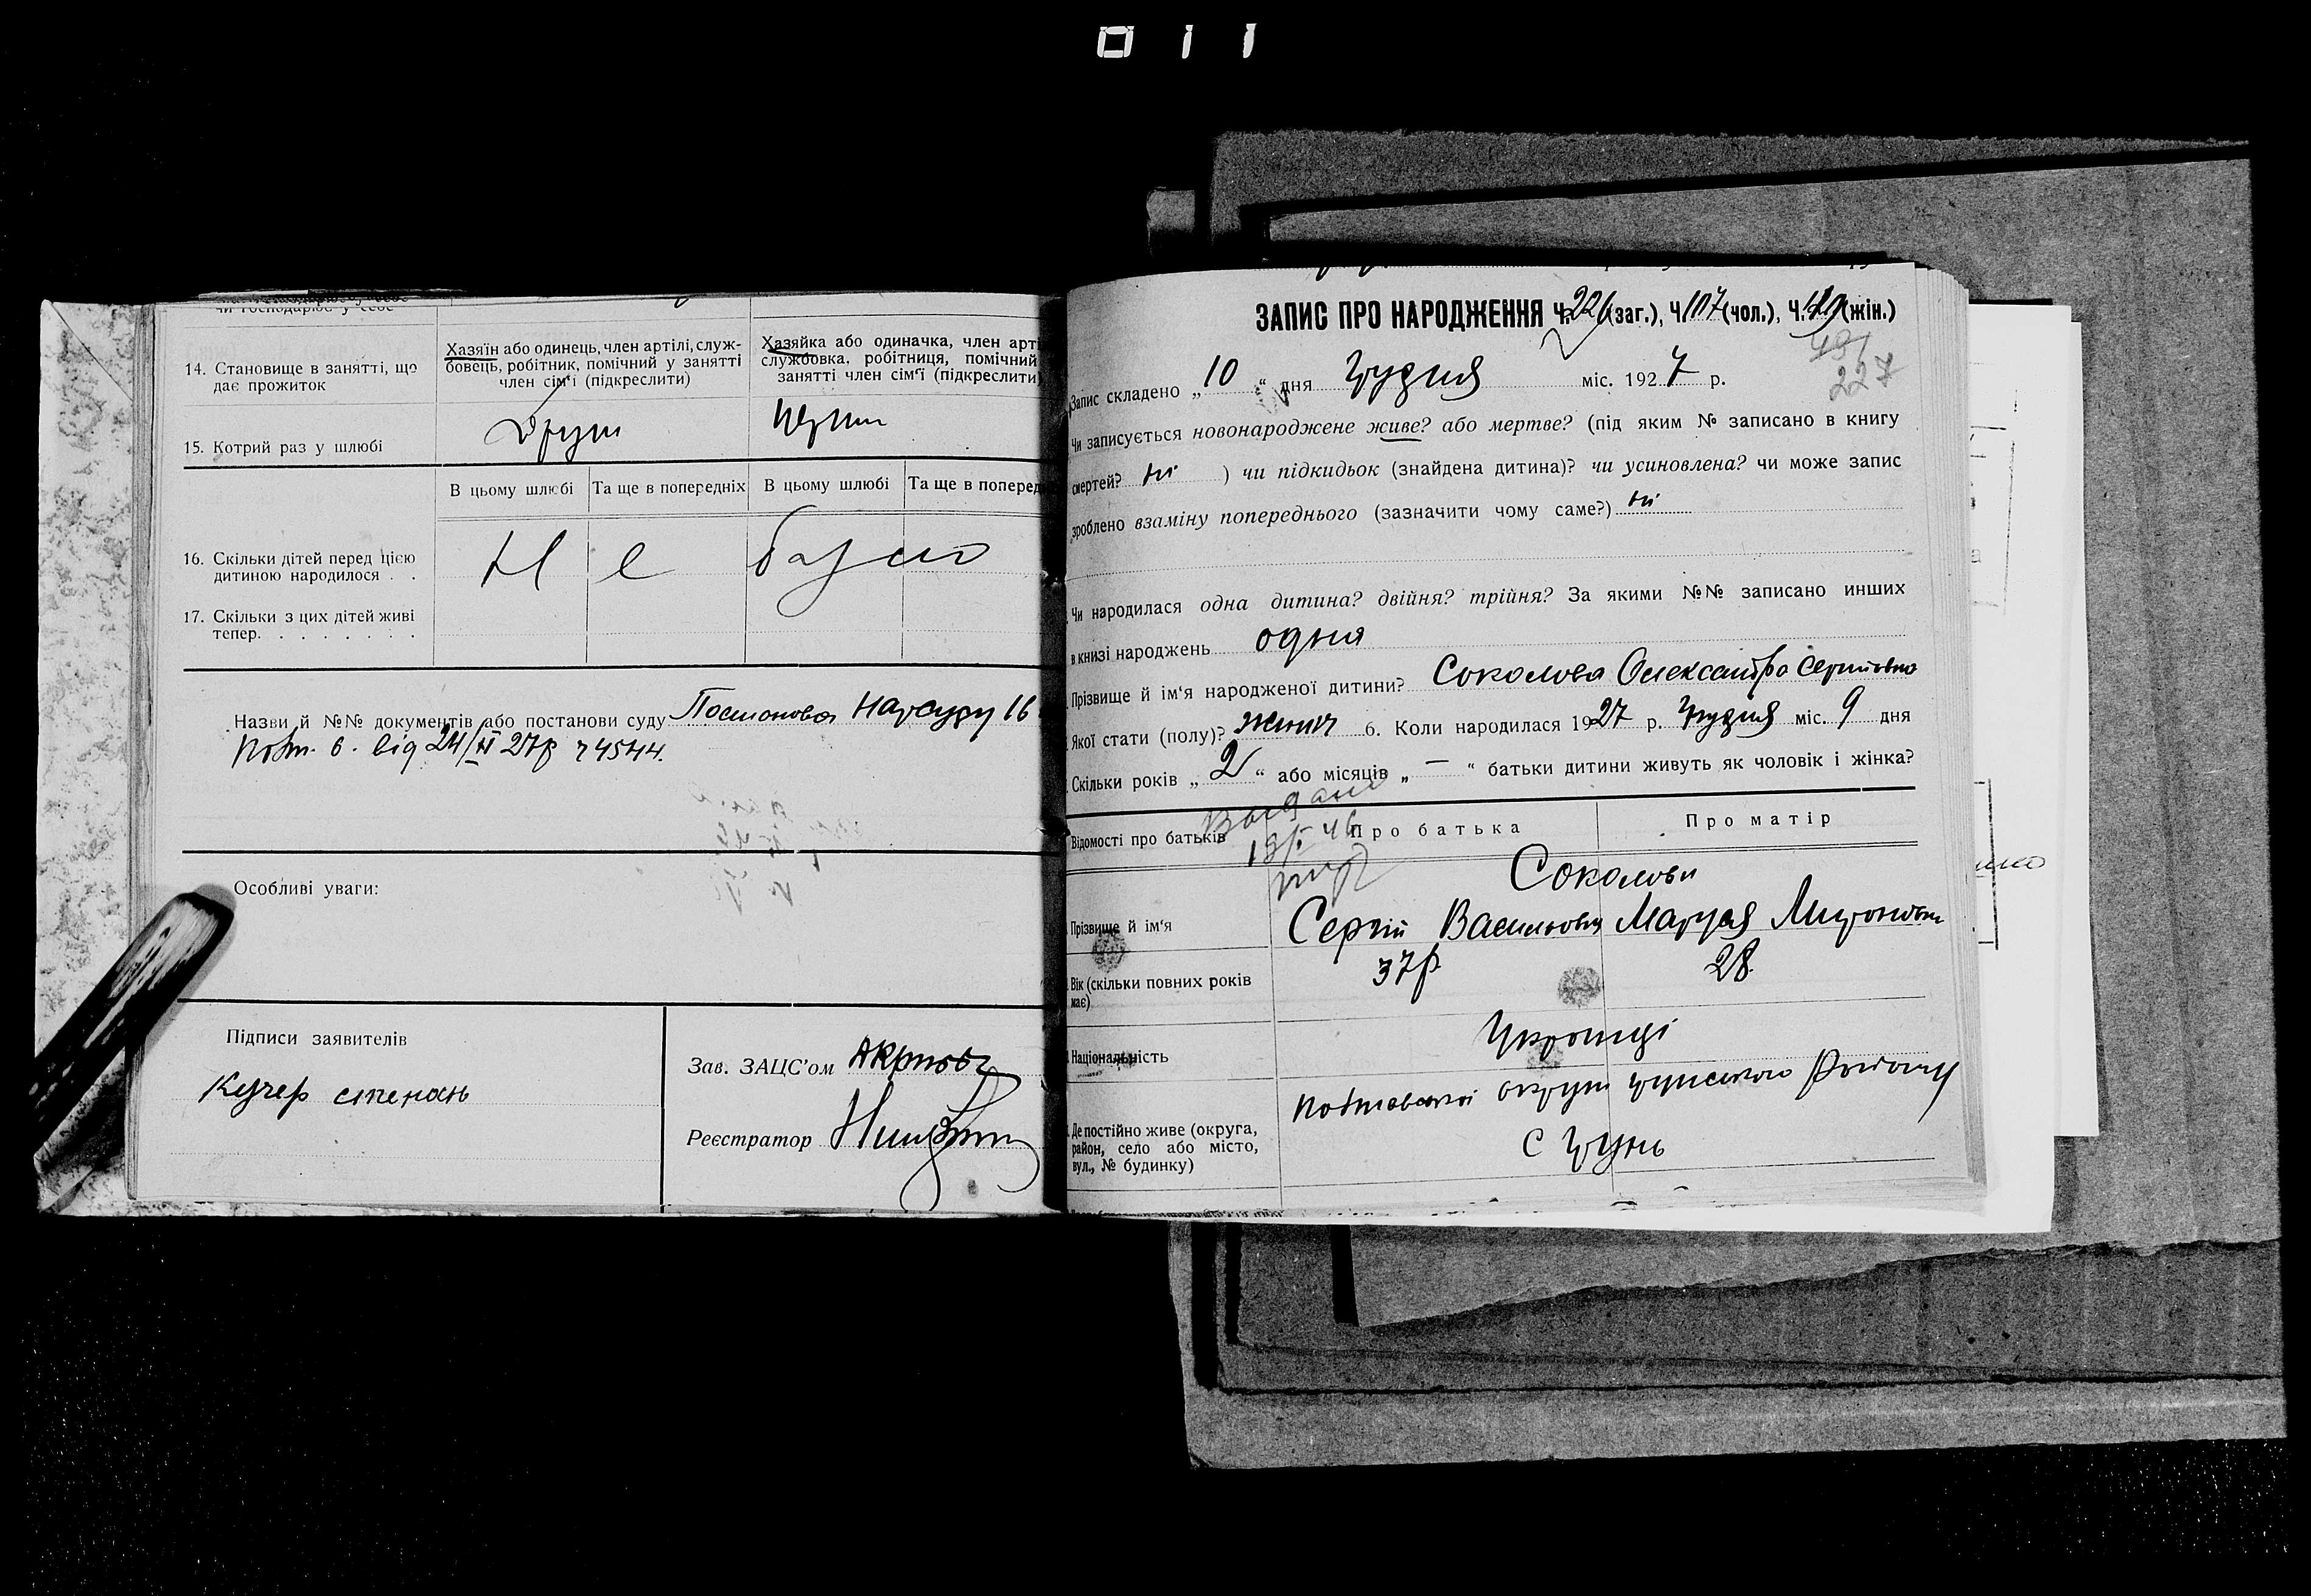 011
чи господарює у себе
14. Становище в занятті, що дає прожиток
Хазяїн або одинець, член артілі, служ-
бовець, робітник, помічний у занятті
член сім'ї (підкреслити)
Хазяйка або одиначка, член арті
службовка, робітниця, помічний
занятті член сім'ї (підкреслити)
15. Котрий раз у шлюбі
В цьому шлюбі Та ще в попередніх В цьому шлюбі Та ще в поперед
16. Скільки дітей перед цією
дитиною народилося . .
Не було
17. Скільки з цих дітей живі
тепер. . . . . . . .
Назви й №№ документів або постанови суду Постанова Нарсуду 16
від 24/XI 27р 4544.
Особливі уваги:
Підписи заявителів
Кучер степань
Зав. ЗАЦС'ом
Реєстратор
ЗАПИС ПРО НАРОДЖЕННЯ Ч. 226 (заг.), Ч 107 (чол.), Ч. 119 (жін.)
227
Запис складено „ 10 “ дня Грудня міс. 192 7 р.
Чи записується новонароджене живе? або мертве? (під яким № записано в книгу
смертей? ні ) чи підкидьок (знайдена дитина)? чи усиновлена? чи може запис
зроблено взаміну попереднього (зазначити чому саме?) ні
Чи народилася одна дитина? двійня? трійня? За якими №№ записано инших
в книзі народжень одна
Прізвище й ім'я народженої дитини? Соколова Олександра Сергіївна
Якої стати (полу)? жіноч 6. Коли народилася 19 27 р. Грудня міс. 9 дня
Скільки років „ 2 “ або місяців „ — “ батьки дитини живуть як чоловік і жінка?
Видано
Відомості про батьків Про батька Про матір
Соколови
Прізвище й ім'я Сергій Васильович Маруся Мироновна
Вік (скільки повних років
має) 37р 28
Національність Українці
Де постійно живе (округа,
район, село або місто,
вул., № будинку)
Полтавської округи Грунського Району
с Грунь